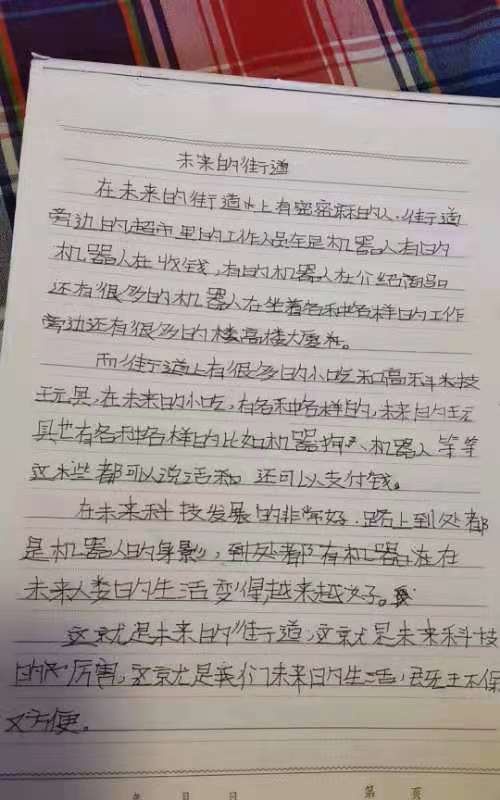 未来的街道
在未来的街道上有密密麻的人.街道
旁边的超市里的工作人员车是机器人有的
机器人在收钱,有的机器人在介绍商品
还有很多的机器人在坐着各种各样的工作
旁边还有很多的楼高楼大厦。
而街道上有很多的小吃和高科技
玩具,在未来的小吃,有各种各样的,未来的玩
具也有各种各样的比如机器狗、机器人等等
这些都可以说活和还可以支付钱。
在未来科技发展的非常好.路上到处都
是机器人的身影,到处都有机器在
未来人类的生活变得越来越好。
这就是未来的街道,这就是未来科技
的厉害,这就是我们未来的生活,环保
又方便。
年 月 日 第 页